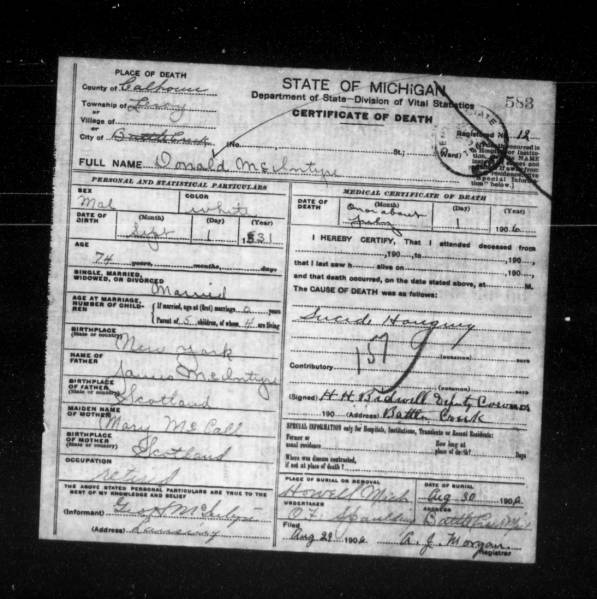 PLACE OF DEATH
County of Calhoun
Township of
or
Village of
or
City of Battle Creek (No. St.; Ward)
STATE OF MICHIGAN
Department of State—Division of Vital Statistics
CERTIFICATE OF DEATH
583
Registered No. 12
FULL NAME Donald McIntyre
PERSONAL AND STATISTICAL PARTICULARS
SEX
Mal
COLOR
white
DATE OF BIRTH
(Month) (Day) (Year)
Sept 1 1831
AGE
74 years, months, days
SINGLE, MARRIED, WIDOWED, OR DIVORCED
Married
AGE AT MARRIAGE, NUMBER OF CHILDREN
If married, age at (first) marriage years
Parent of 5 children, of whom 4 are living
BIRTHPLACE
(State or country)
New York
NAME OF FATHER
James McIntyre
BIRTHPLACE OF FATHER
(State or country)
Scotland
MAIDEN NAME OF MOTHER
Mary McCall
BIRTHPLACE OF MOTHER
(State or country)
Scotland
OCCUPATION
retired
THE ABOVE STATED PERSONAL PARTICULARS ARE TRUE TO THE BEST OF MY KNOWLEDGE AND BELIEF
(Informant) McIntyre
(Address) Lansing
MEDICAL CERTIFICATE OF DEATH
DATE OF DEATH
(Month) (Day) (Year)
On or about July 1 1906
I HEREBY CERTIFY, That I attended deceased from
, 190 , to , 190 ,
that I last saw h alive on , 190 ,
and that death occurred, on the date stated above, at M.
The CAUSE OF DEATH was as follows:
Sucide Hanging
157
Contributory
(Signed) H. H. Bidwell Deputy Coroner
190 (Address) Battle Creek
SPECIAL INFORMATION only for Hospitals, Institutions, Transients or Recent Residents:
Former or usual residence
How long at place of death? days
Where was disease contracted, if not at place of death?
PLACE OF BURIAL OR REMOVAL
Howell Mich
DATE OF BURIAL
Aug 30 1906
UNDERTAKER
Spaulding
ADDRESS
Battle Creek Mich
Filed
Aug 29 1906
A. J. Morgan
Registrar